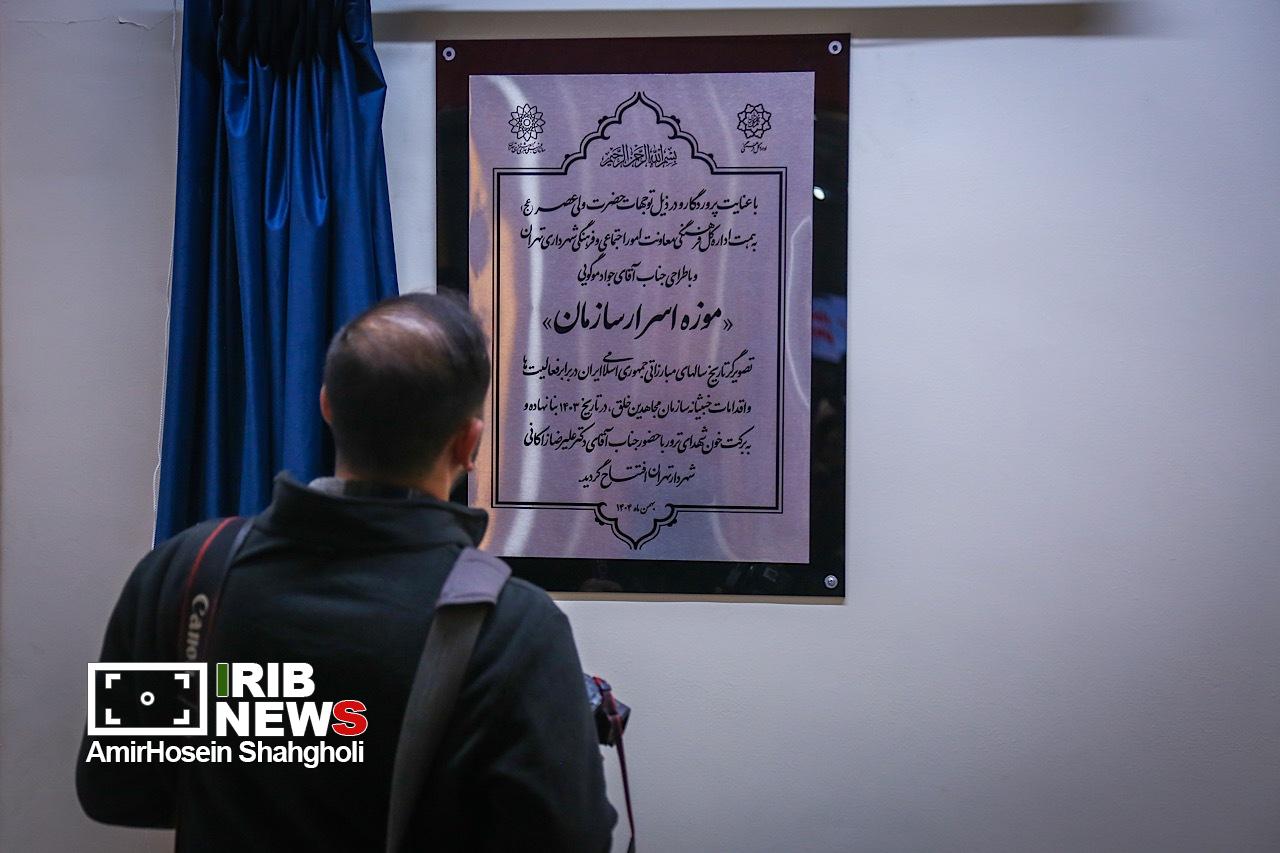 بسم الله الرحمن الرحیم
با عنایت پروردگار و در ذیل توجهات حضرت ولی عصر (عج)
به همت اداره کل فرهنگی معاونت امور اجتماعی و فرهنگی شهرداری تهران
و با طراحی جناب آقای جواد موگویی
«موزه اسرار سازمان»
تصویرگر تاریخ سالهای مبارزاتی جمهوری اسلامی ایران در برابر فعالیت ها
و اقدامات خبیثانه سازمان مجاهدین خلق، در تاریخ ۱۴۰۳ بنا نهاده و
به برکت خون شهدای ترور با حضور جناب آقای دکتر علیرضا زاکانی
شهردار تهران افتتاح گردید.
بهمن ماه ۱۴۰۴
Canon
IRIB
NEWS
AmirHosein Shahgholi